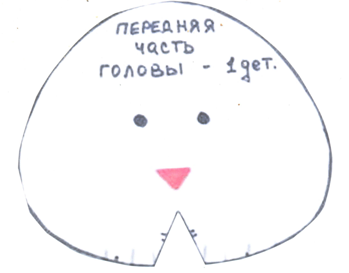 ПЕРЕДНЯЯ
ЧАСТЬ
ГОЛОВЫ - 1 дет.